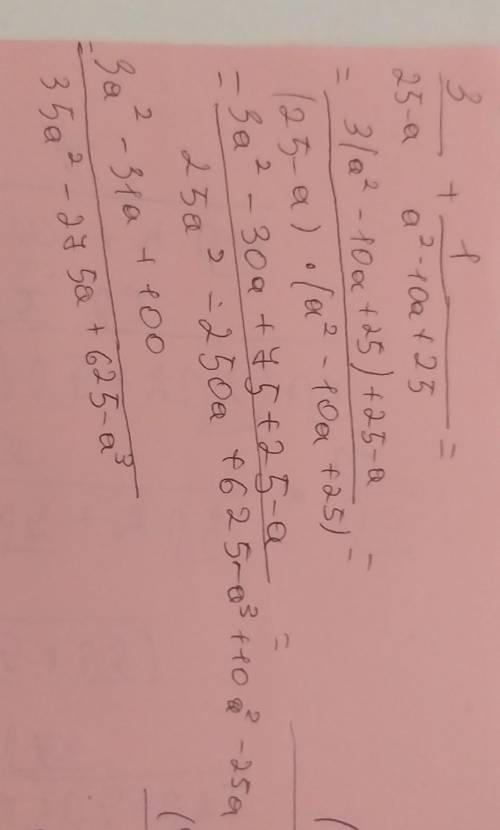 3/(25-a) + 1/(a²-10a+25) =
= (3(a²-10a+25)+25-a)/((25-a)·(a²-10a+25)) =
= (3a²-30a+75+25-a)/(25a²-250a+625-a³+10a²-25a) =
= (3a²-31a+100)/(35a²-275a+625-a³)